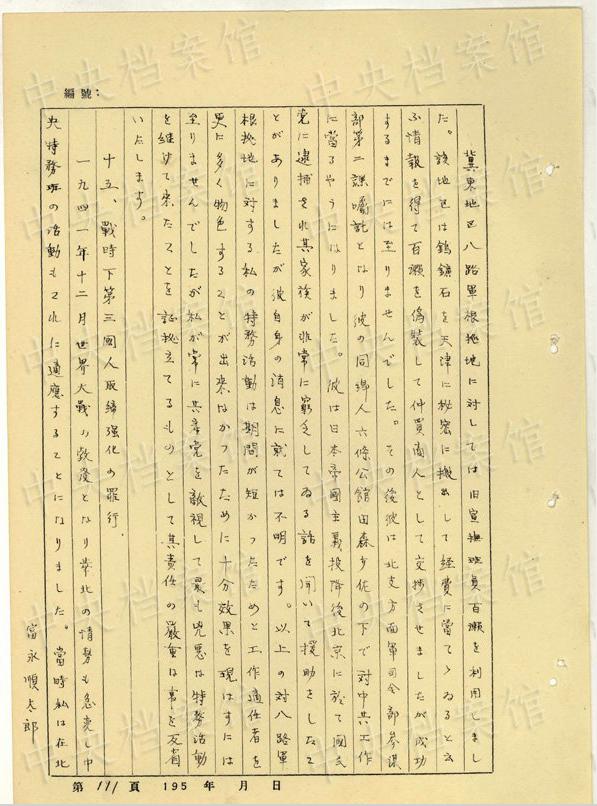 編號:
冀東地区八路軍根拠地に対しては旧宣撫班員百瀬を利用しまし
た。該地区は鎢鑛石を天津に秘密に搬出して経費に當てゝゐると云
ふ情報を得て百瀬を偽装して仲買商人として交渉させましたが成功
するまでには至りませんでした。その後彼は北支方面軍司令部参謀
部第二課嘱託となり彼の同郷人六條公館田森少佐の下で対中共工作
に當るやうになりました。彼は日本帝國主義投降後北京に於て國民
党に逮捕され其家族が非常に窮乏してゐる話を聞いて援助をしたこ
とがありましたが彼自身の消息に就ては不明です。以上の対八路軍
根拠地に対する私の特務活動は期間が短かつたためと工作適任者を
更に多く物色することが出来なかつたために十分效果を現はすには
至りませんでしたが私が常に共産党を敵視して最も兇悪な特務活動
を継けて来たことを証拠立てるものとして其責任の嚴重な事を反省
いたします。
十五、戰時下第三國人取締強化の罪行.
一九四一年十二月世界大戰の激發となり華北の情勢も急変し中
央特務班の活動もこれに適應することになりました。當時私は在北
富永順太郎
第111頁 195 年 月 日
中央档案馆